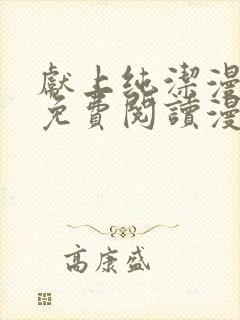 獻上純潔漫
免費閱讀漫
高康盛